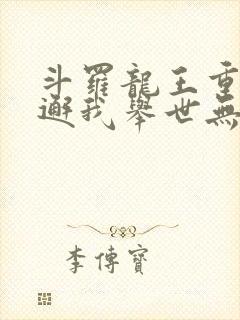 斗羅龍王重
邂我舉世無
李傳寶